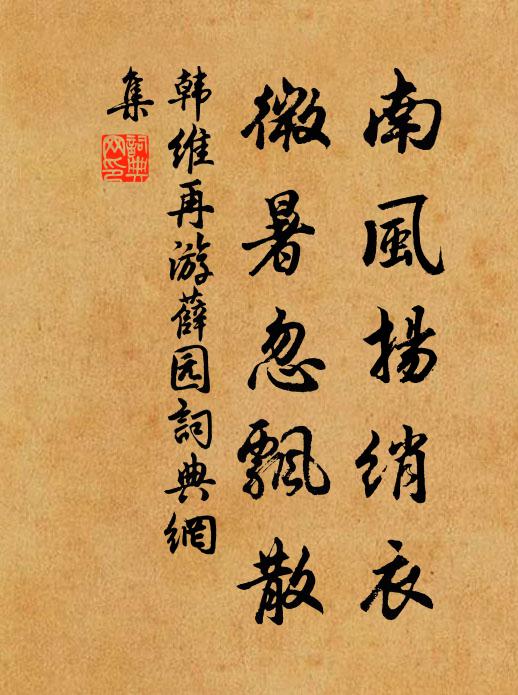 南風揚綃衣
微暑忽飄散
韩維再游薛园詞典網
集
詞典
网印